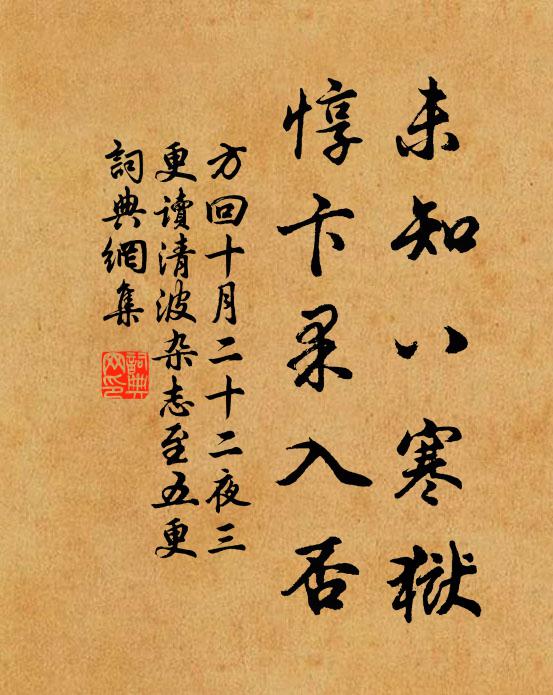 未知八寒獄
惇卞果入否
方回十月二十二夜三
更讀清波杂志至五更
詞典網集
詞典網印